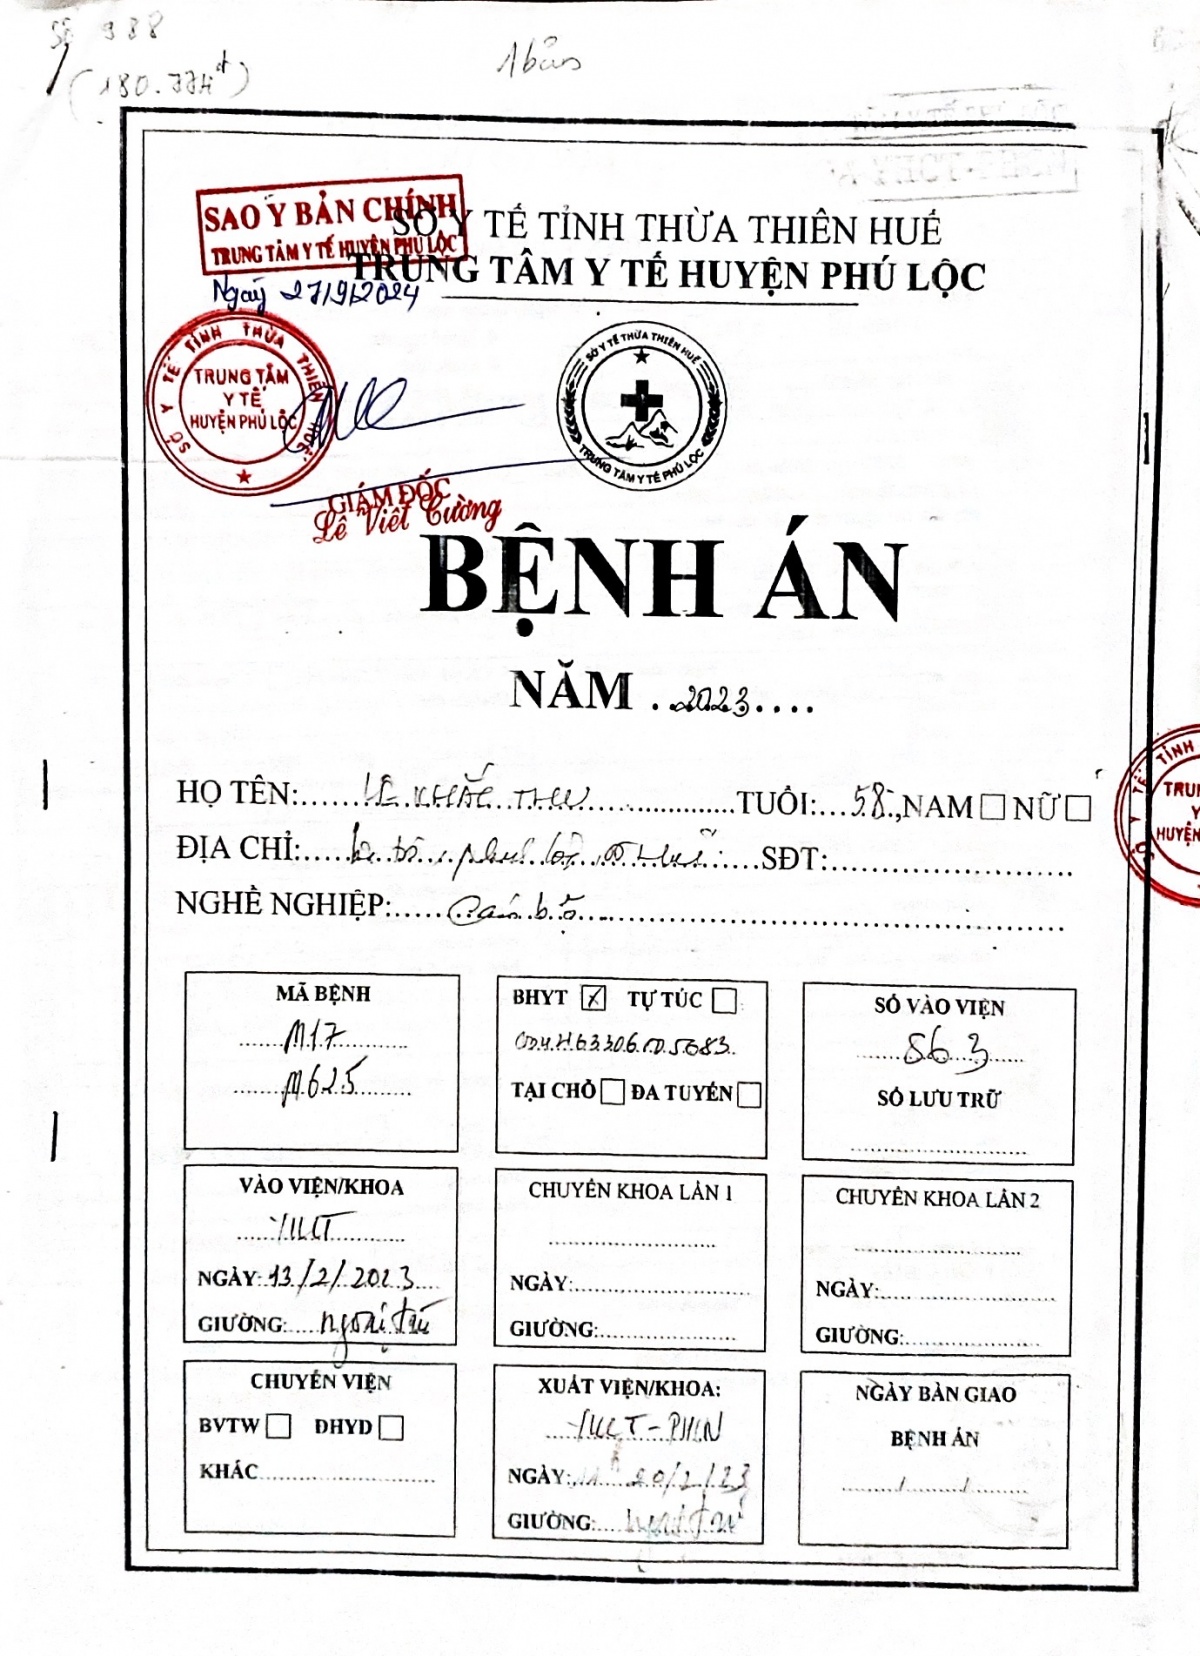 Số 988
(180.774đ)
1 bản
SỞ Y TẾ TỈNH THỪA THIÊN HUẾ
TRUNG TÂM Y TẾ HUYỆN PHÚ LỘC
SAO Y BẢN CHÍNH
TRUNG TÂM Y TẾ HUYỆN PHÚ LỘC
Ngày 27/9/2024
SỞ Y TẾ TỈNH THỪA THIÊN HUẾ
TRUNG TÂM
Y TẾ
HUYỆN PHÚ LỘC
SỞ Y TẾ THỪA THIÊN HUẾ
TRUNG TÂM Y TẾ PHÚ LỘC
GIÁM ĐỐC
Lê Viết Cường
BỆNH ÁN
NĂM .2023....
HỌ TÊN:......LÊ KHẮC THU...............TUỔI:...58.,NAM ☐ NỮ ☐
ĐỊA CHỈ:.............SĐT:........................
NGHỀ NGHIỆP:......Cán bộ..........................................
MÃ BỆNH
M17
M62.5
BHYT ☒ TỰ TÚC ☐
TẠI CHỖ ☐ ĐA TUYẾN ☐
SỐ VÀO VIỆN
563
SỐ LƯU TRỮ
VÀO VIỆN/KHOA
YHCT
NGÀY:13/2/2023
GIƯỜNG:....ngoại trú
CHUYỂN KHOA LẦN 1
NGÀY:
GIƯỜNG:
CHUYỂN KHOA LẦN 2
NGÀY:
GIƯỜNG:
CHUYỂN VIỆN
BVTW ☐ ĐHYD ☐
KHÁC
XUẤT VIỆN/KHOA:
YHCT-PHCN
NGÀY: 20/2/23
GIƯỜNG:....ngoại trú
NGÀY BÀN GIAO
BỆNH ÁN
......../......../........